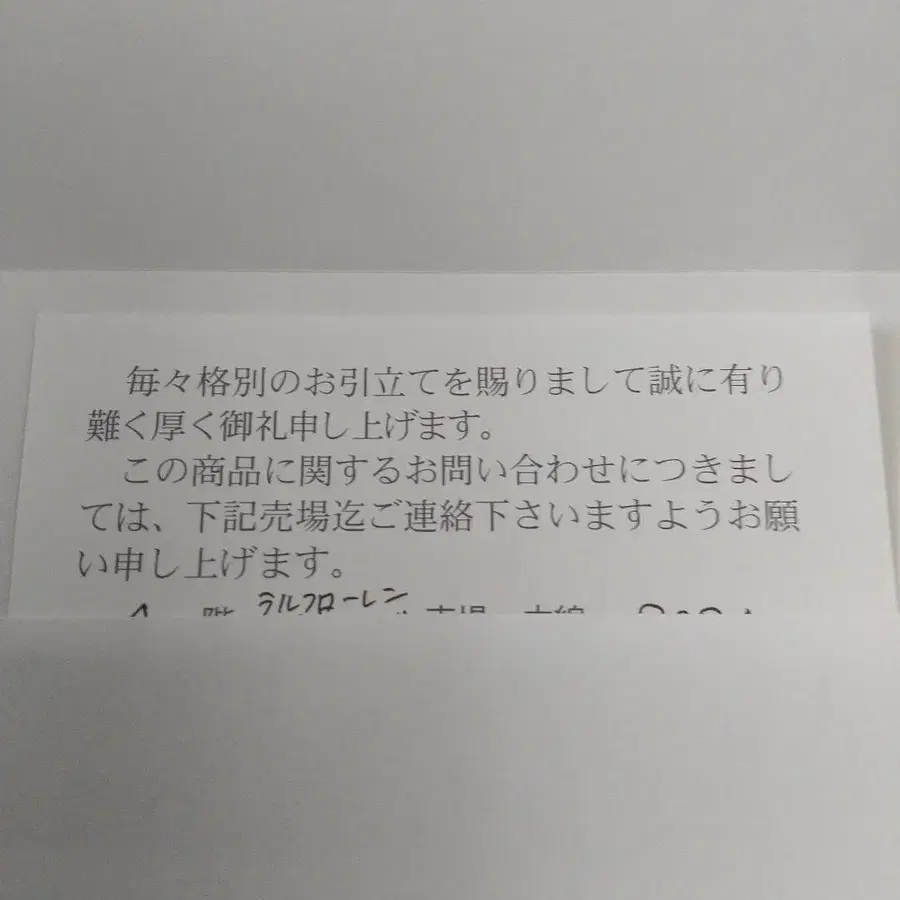 毎々格別のお引立てを賜りまして誠に有り
難く厚く御礼申し上げます。
この商品に関するお問い合わせにつきまし
ては、下記売場迄ご連絡下さいますようお願
い申し上げます。
ラルフローレン